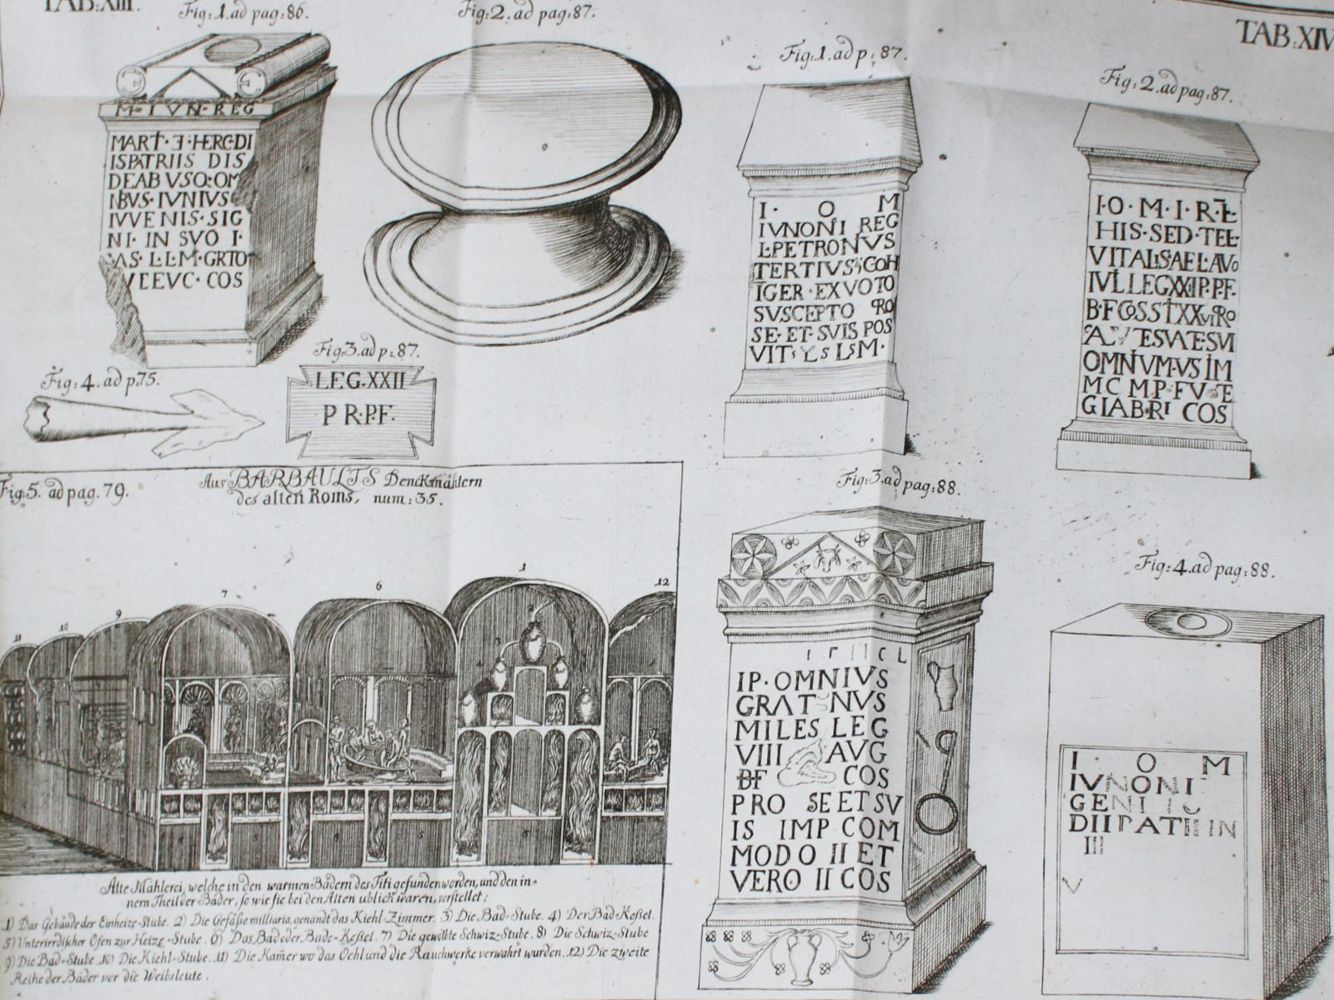 TAB: XIII.
Fig: 1. ad pag: 86.
M· IVN· REG
MART· HERC·DI
ISPATRIIS DIS
DEABVSQ·OM
NBVS·IVNIVS
IVVENIS·SIG
NI· IN SVO I·
AS· L·L·M·GRTO
VCEVC· COS
Fig: 2. ad pag: 87.
Fig: 3. ad p: 87.
LEG·XXII
P R·P·F·
Fig: 4. ad p. 75.
Fig: 5. ad pag. 79.
Aus BARBAULTS Denckmählern
des alten Roms, num: 35.
11 10 9 7 6 1 12
Alte Mahlerei, welche in den warmen Bädern des Titi gefunden worden, und den in=
nern Theil der Bäder, so wie sie bei den Alten üblich waren, vorstellet;
1) Das Gebäude der Einheize-Stube. 2) Die Gefäße milliaria, genandt das Kiehl-Zimmer. 3) Die Bad-Stube. 4) Der Bad-Keßel.
5) Unterirrdischer Ofen zur Heize-Stube. 6) Das Bad oder Bade-Keßel. 7) Die gewölbte Schwiz-Stube. 8) Die Schwiz-Stube
9) Die Bad-Stube. 10) Die Kiehl-Stube. 11) Die Kamer wo das Oehl und die Rauchwerke verwahrt wurden. 12) Die zweite
Reihe der Bäder vor die Weibsleute.
TAB: XIV
Fig: 1. ad p: 87.
I· O M
IVNONI REG
L·PETRONVS
TERTIVS·COH
IGER·EXVOTO
SVSCEPTO PRO
SE·ET·SVIS POS
VIT· LSLM·
Fig: 2. ad pag: 87.
I·O·M·I·R·
HIS·SED·TEL
VITALIS·AEL·AVO
IVL LEG XXII P.P.F.
B·F COS
OMNIVM·VSIM
MC MP·FV
GIABRI COS
Fig: 3. ad pag: 88.
IP· OMNIVS
GRAT NVS
MILES LEG
VIII AVG
BF COS
PRO SE ET SV
IS IMP COM
MOD O II ET
VERO II COS
Fig: 4. ad pag: 88.
I O M
IVNONI
GENI
DII PAT IN
III
V